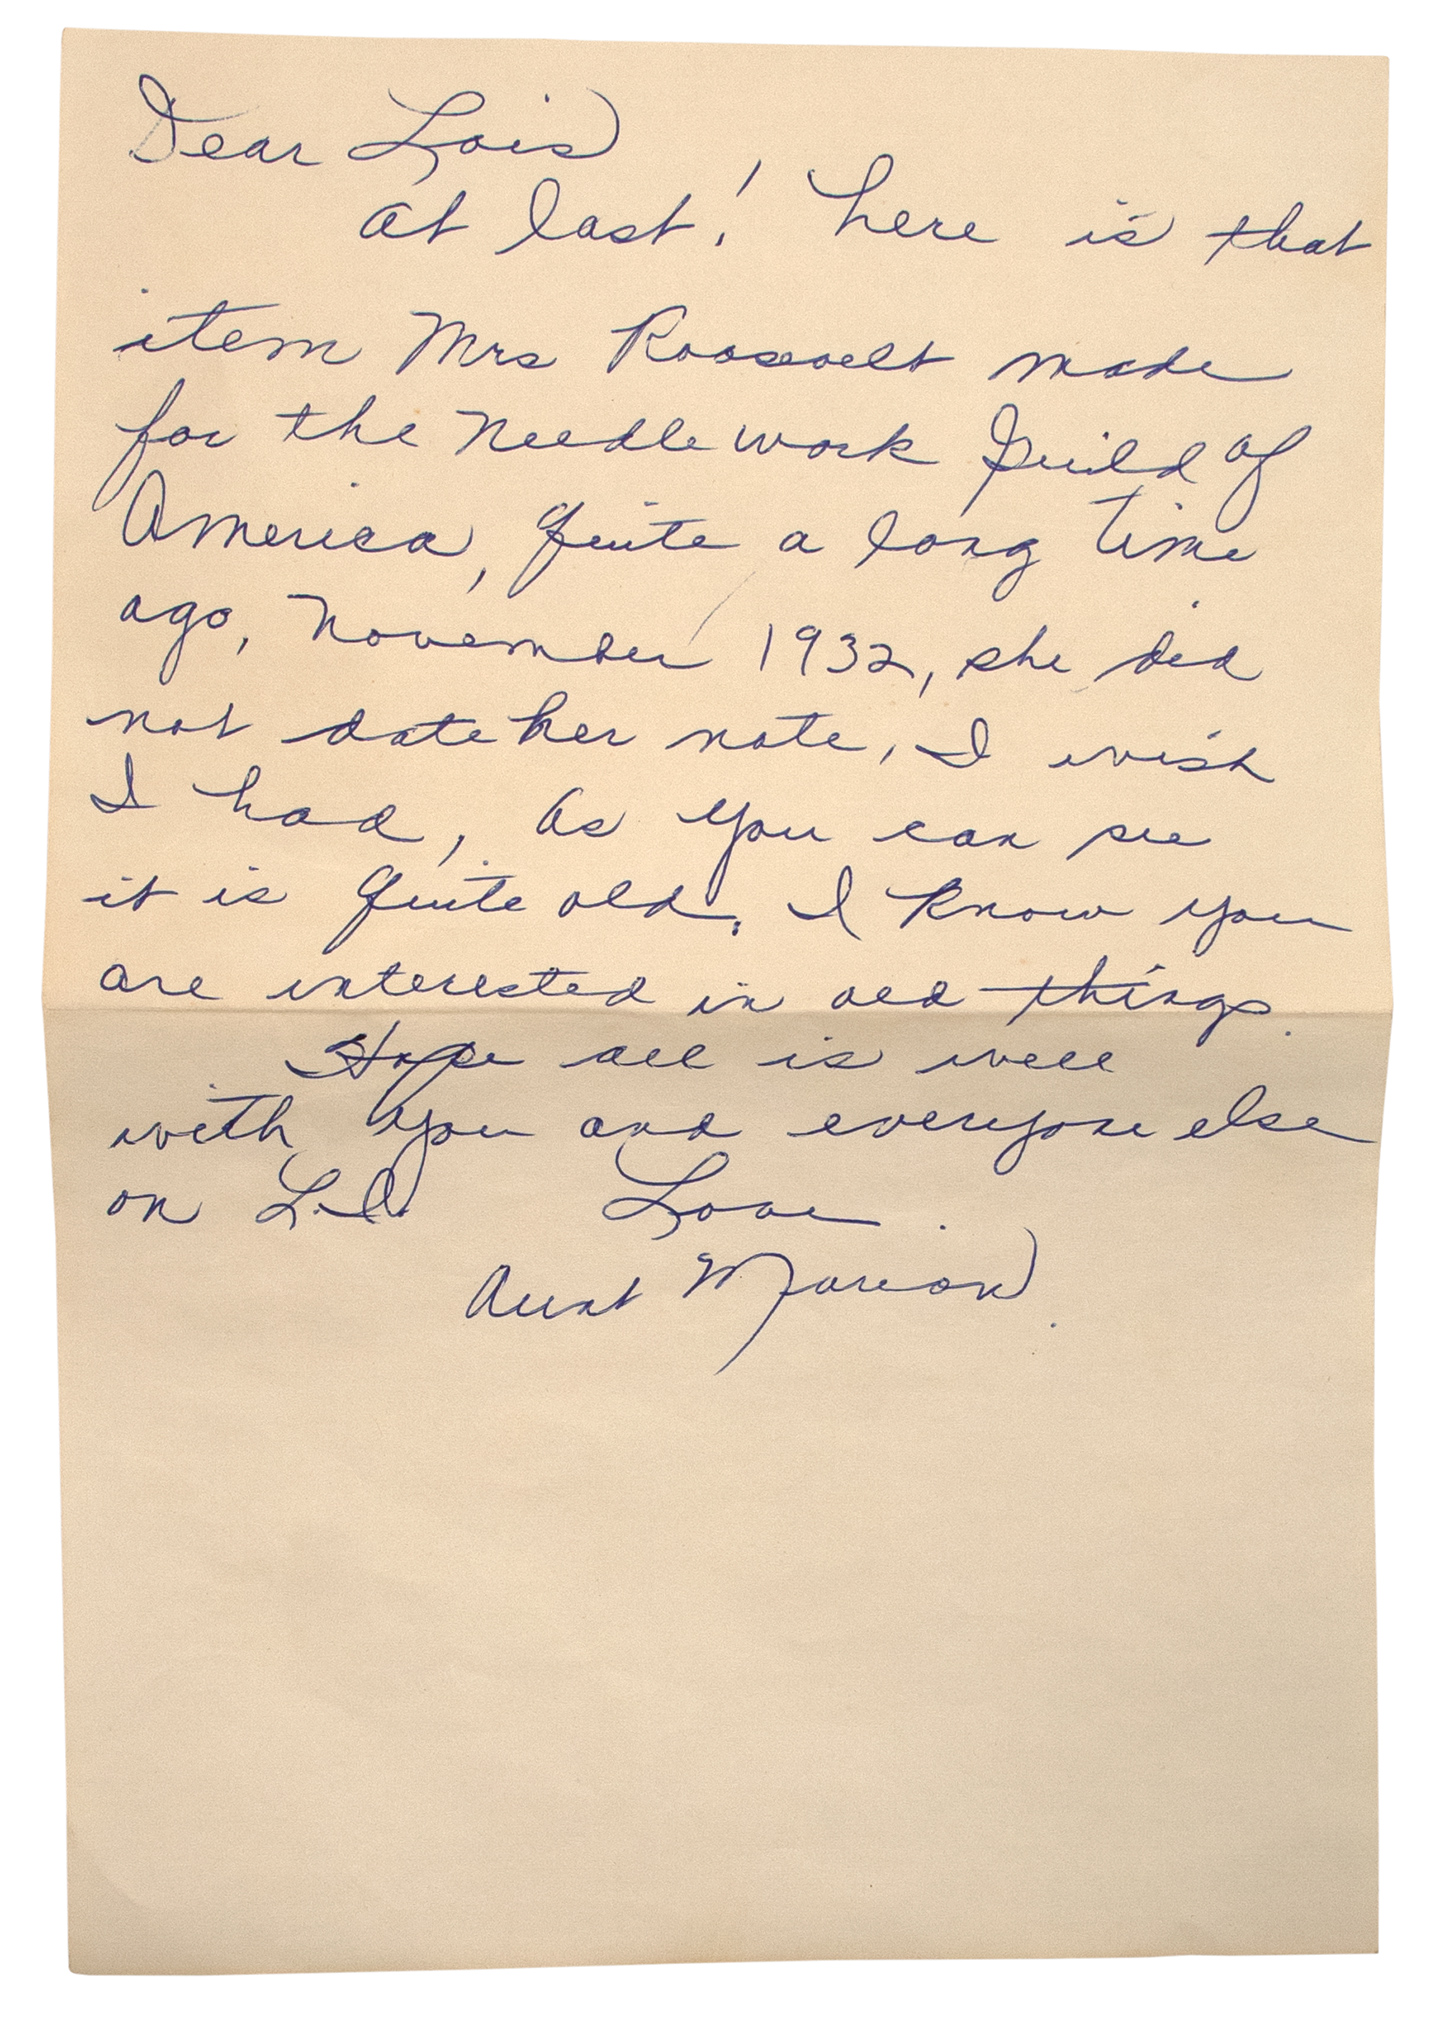 Dear Lois
at last! here is that
item Mrs Roosevelt made
for the Needle work Guild of
America, Quite a long time
ago, November 1932, she did
not date her note, I wish
I had, as you can see
it is Quite old. I know you
are interested in old things.
Hope all is well
with you and everyone else
on L.I. Love.
Aunt Marion.